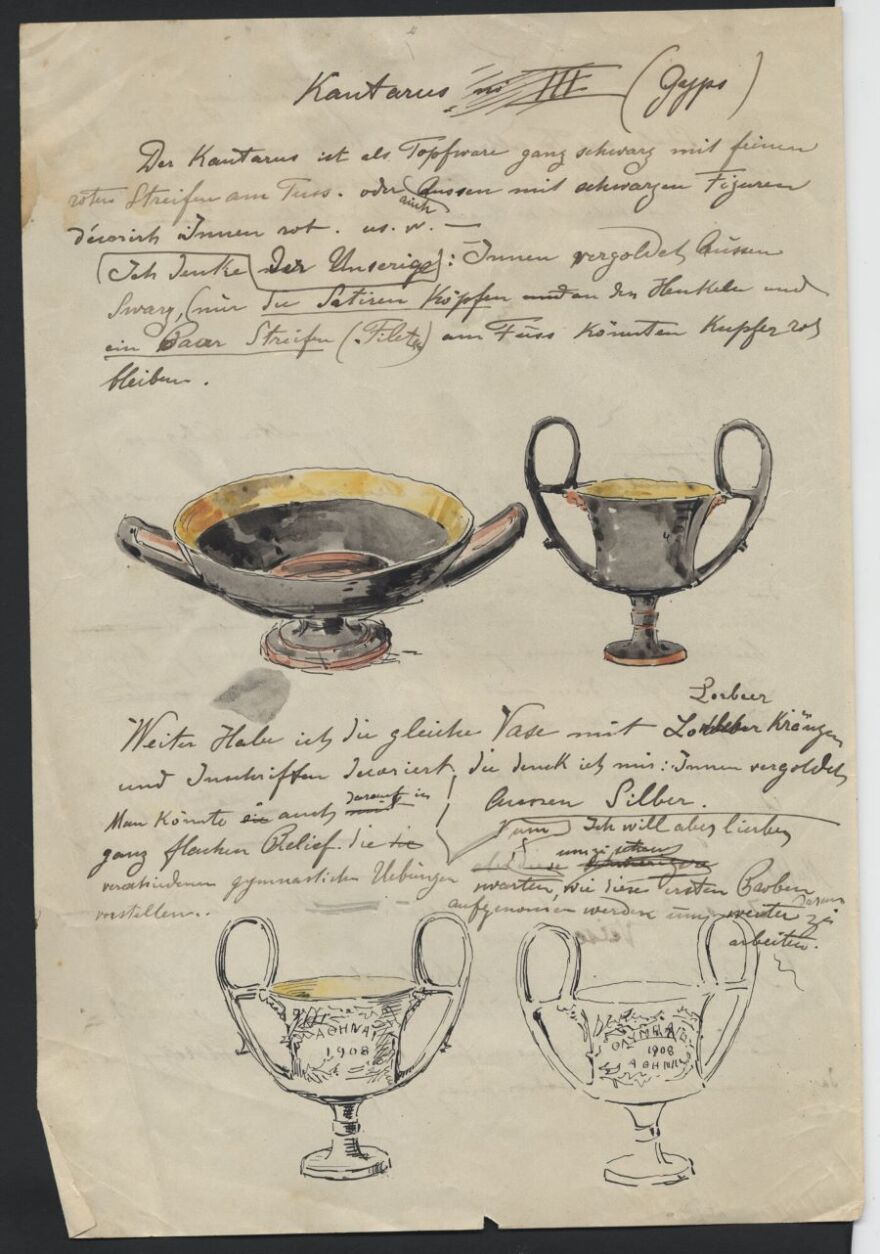 Kantarus III (Gyps)
Der Kantarus ist als Topfware ganz schwarz mit feinen
roten Streifen am Fuss. oder Aussen mit schwarzen Figuren
auch
décorirt Innen rot. us. w. —
Ich denke der Unserige: Innen vergoldet Aussen
Swarz, (nur die Satiren Köpfen an den Henkeln und
ein Paar Streifen (Filets) am Fuss könnten Kupfer rot
bleiben.
Lorbeer
Weiter Habe ich die gleiche Vase mit Kränzen
und Inschriften decoriert, die denck ich mir: Innen vergoldet
Aussen Silber.
Man könnte auch darauf in
ganz flachen Relief die
verschiedenen gymnastischen Uebungen
vorstellen..
Ich will aber lieber
warten, wie diese ersten Proben
aufgenomen werden um weiter zu
daran
arbeiten.
ΑΘΗΝΑΙ
1908
1908
ΑΘΗΝΑΙ